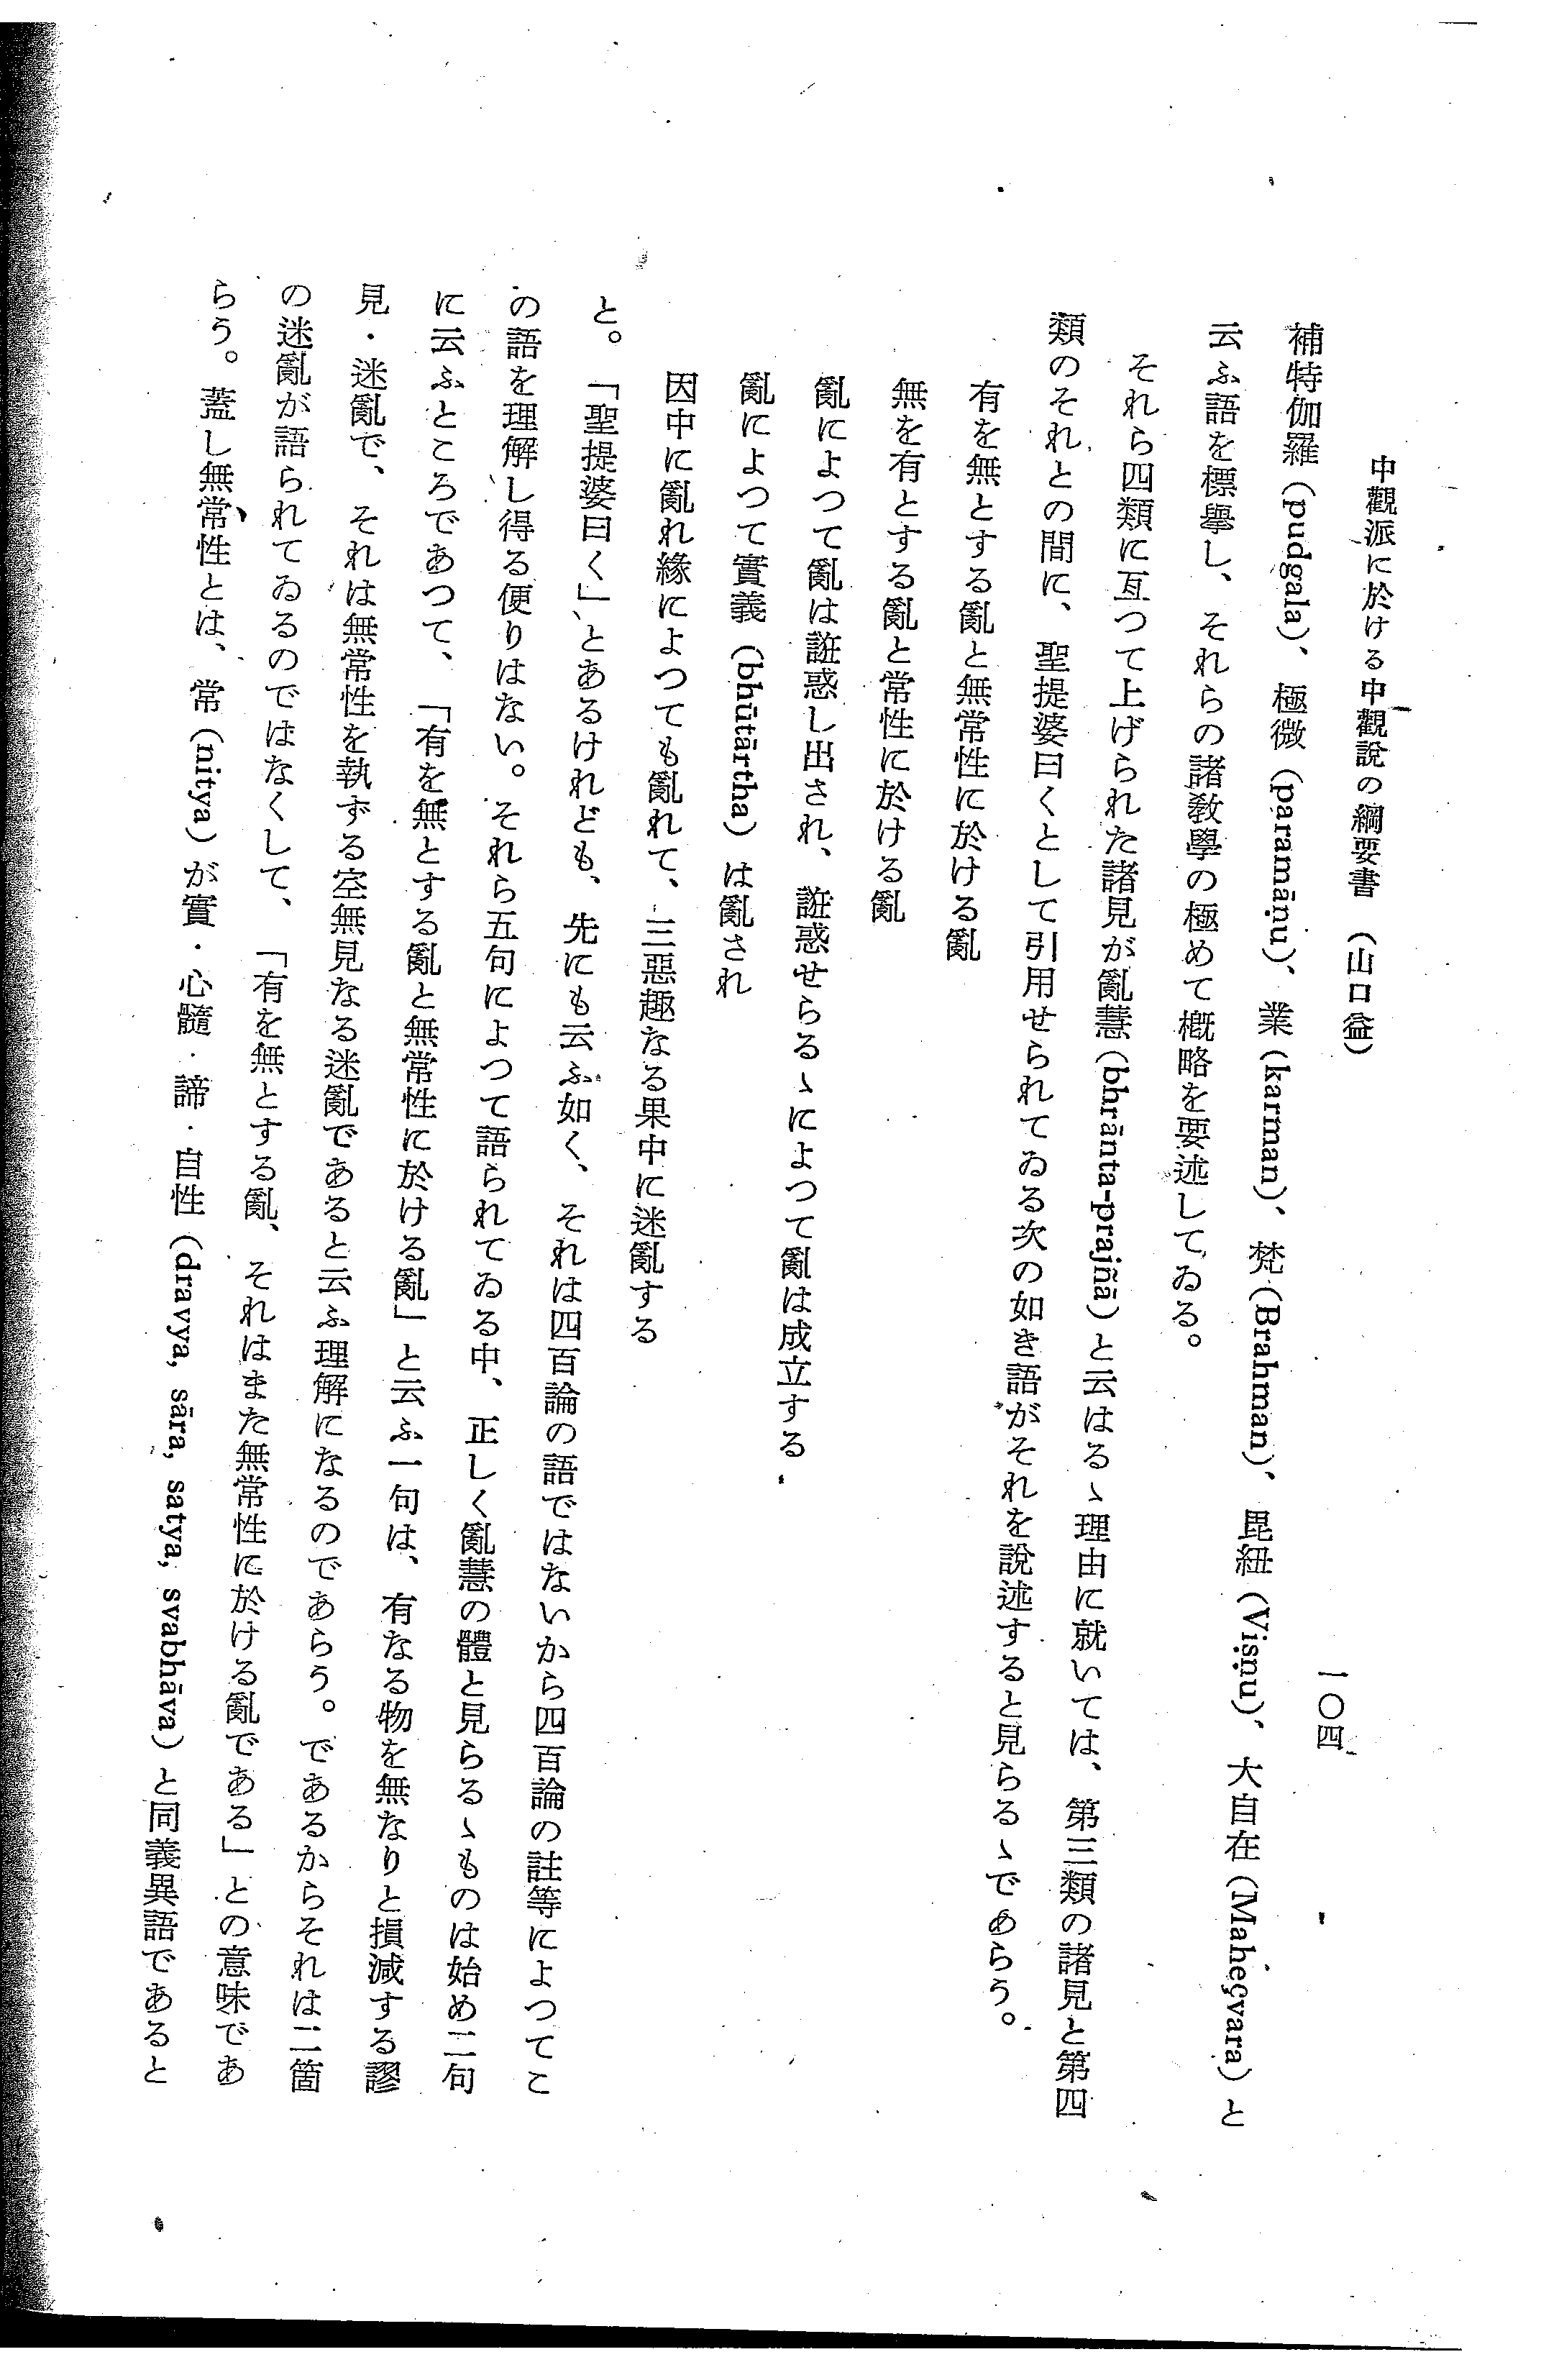 中觀派に於ける中觀說の綱要書 (山口益)
一〇四
補特伽羅 (pudgala)、極微 (paramāṇu)、業 (karman)、梵 (Brahman)、毘紐 (Viṣṇu)、大自在 (Maheçvara) と
云ふ語を標擧し、それらの諸敎學の極めて概略を要述してゐる。
それら四類に亙つて上げられた諸見が亂慧 (bhrānta-prajñā) と云はるゝ理由に就いては、第三類の諸見と第四
類のそれとの間に、聖提婆曰くとして引用せられてゐる次の如き語がそれを說述すると見らるゝであらう。
有を無とする亂と無常性に於ける亂
無を有とする亂と常性に於ける亂
亂によつて亂は誑惑し出され、誑惑せらるゝによつて亂は成立する
亂によつて實義 (bhūtārtha) は亂され
因中に亂れ緣によつても亂れて、三惡趣なる果中に迷亂する
と。「聖提婆曰く」とあるけれども、先にも云ふ如く、それは四百論の語ではないから四百論の註等によつてこ
の語を理解し得る便りはない。それら五句によつて語られてゐる中、正しく亂慧の體と見らるゝものは始め二句
に云ふところであつて、「有を無とする亂と無常性に於ける亂」と云ふ一句は、有なる物を無なりと損減する謬
見・迷亂で、それは無常性を執ずる空無見なる迷亂であると云ふ理解になるのであらう。であるからそれは二箇
の迷亂が語られてゐるのではなくして、「有を無とする亂、それはまた無常性に於ける亂である」との意味であ
らう。蓋し無常性とは、常 (nitya) が實・心髓・諦・自性 (dravya, sāra, satya, svabhāva) と同義異語であると